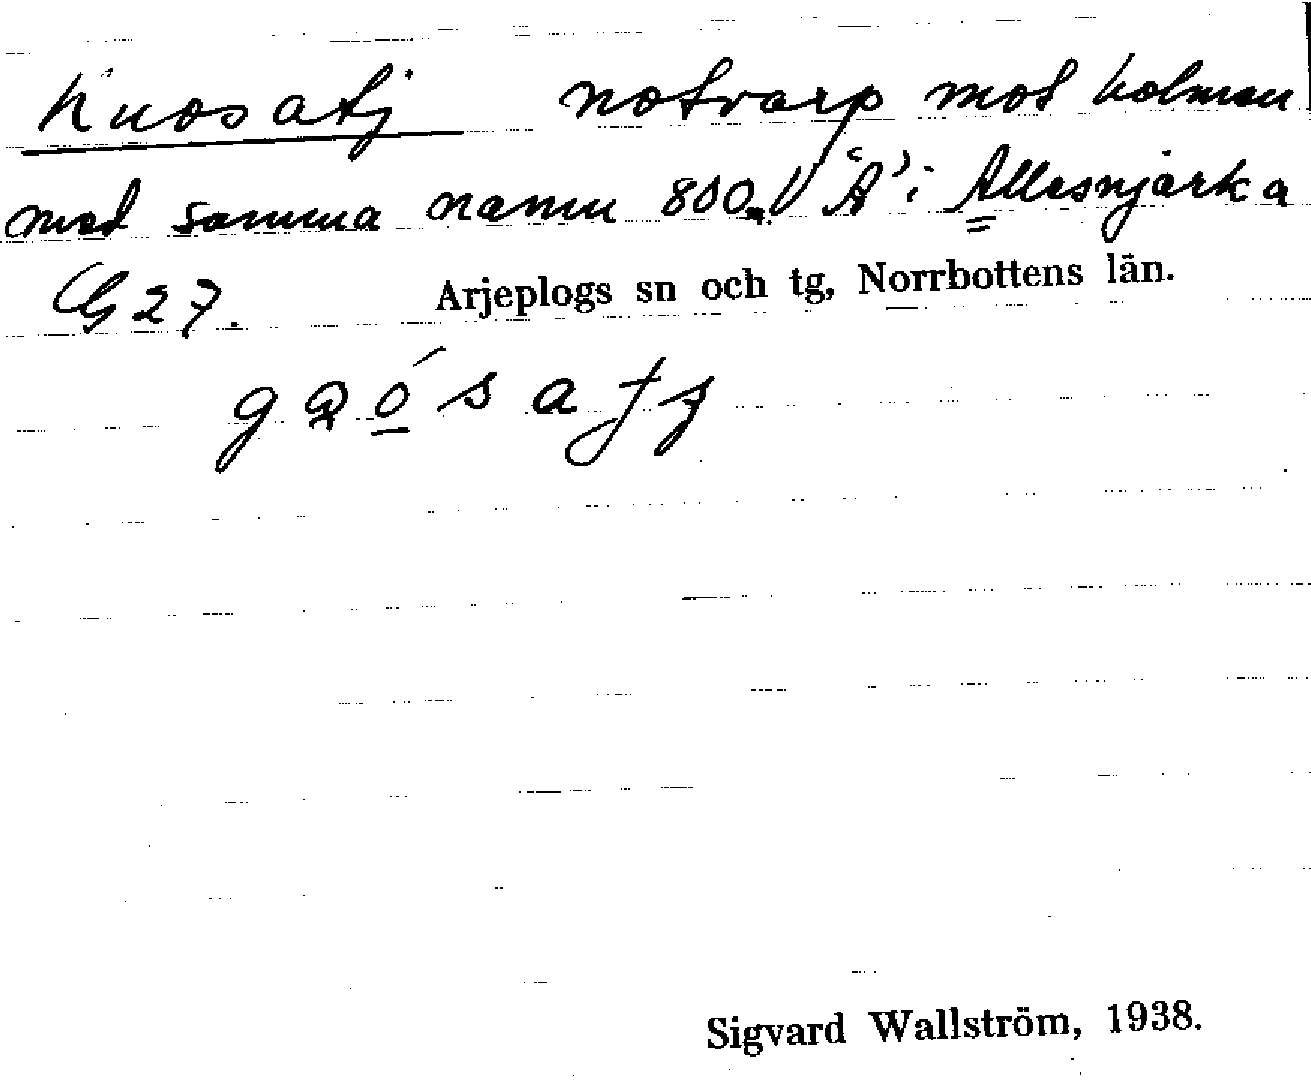 Kuosatj notvarp mot holmen
med samma namn 800 m V "A" i Allesnjarka
G 27. Arjeplogs sn och tg, Norrbottens län.
Sigvard Wallström, 1938.